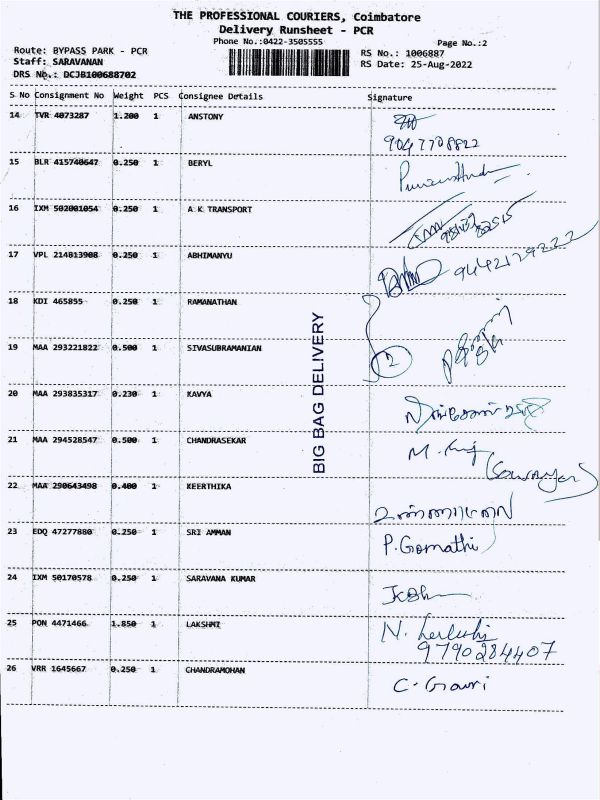 THE PROFESSIONAL COURIERS, Coimbatore
Delivery Runsheet - PCR
Phone No.:0422-3505555 Page No.:2
Route: BYPASS PARK - PCR RS No.: 1006887
Staff: SARAVANAN RS Date: 25-Aug-2022
DRS No.: DCJB100688702
S No Consignment No Weight PCS Consignee Details Signature
14 TVR 4073287 1.200 1 ANSTONY
9047708822
15 BLR 415740647 0.250 1 BERYL
16 IXM 502001054 0.250 1 A K TRANSPORT
17 VPL 214813908 0.250 1 ABHIMANYU 9442179222
18 KDI 465855 0.250 1 RAMANATHAN
19 MAA 293221822 0.500 1 SIVASUBRAMANIAN 2
20 MAA 293835317 0.230 1 KAVYA
21 MAA 294528547 0.500 1 CHANDRASEKAR M.
22 MAA 290643498 0.400 1 KEERTHIKA
23 EDQ 47277880 0.250 1 SRI AMMAN P. Gomathi
24 IXM 50170578 0.250 1 SARAVANA KUMAR
25 PON 4471466 1.850 1 LAKSHMI N.
9790284407
26 VRR 1645667 0.250 1 CHANDRAMOHAN C. Gowri
BIG BAG DELIVERY